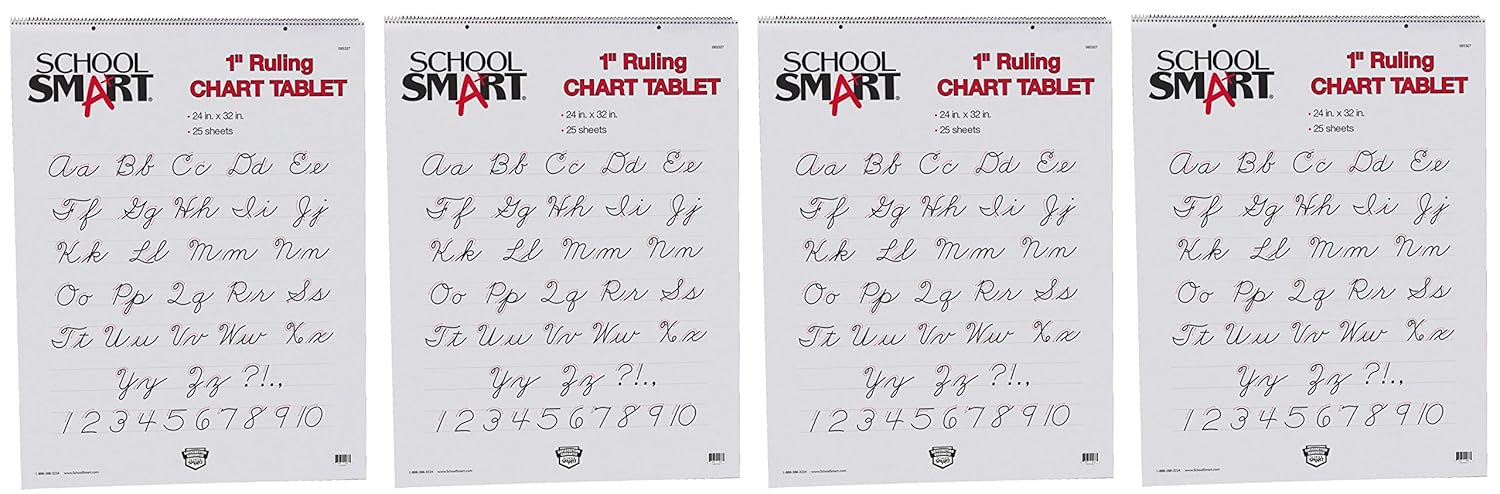 085327
SCHOOL
SMART®
1" Ruling
CHART TABLET
• 24 in. x 32 in.
• 25 sheets
Aa Bb Cc Dd Ee
Ff Gg Hh Ii Jj
Kk Ll Mm Nn
Oo Pp Qq Rr Ss
Tt Uu Vv Ww Xx
Yy Zz ?!.,
1 2 3 4 5 6 7 8 9 10
1-888-388-3224 www.SchoolSmart.com
085327
SCHOOL
SMART®
1" Ruling
CHART TABLET
• 24 in. x 32 in.
• 25 sheets
Aa Bb Cc Dd Ee
Ff Gg Hh Ii Jj
Kk Ll Mm Nn
Oo Pp Qq Rr Ss
Tt Uu Vv Ww Xx
Yy Zz ?!.,
1 2 3 4 5 6 7 8 9 10
1-888-388-3224 www.SchoolSmart.com
085327
SCHOOL
SMART®
1" Ruling
CHART TABLET
• 24 in. x 32 in.
• 25 sheets
Aa Bb Cc Dd Ee
Ff Gg Hh Ii Jj
Kk Ll Mm Nn
Oo Pp Qq Rr Ss
Tt Uu Vv Ww Xx
Yy Zz ?!.,
1 2 3 4 5 6 7 8 9 10
1-888-388-3224 www.SchoolSmart.com
085327
SCHOOL
SMART®
1" Ruling
CHART TABLET
• 24 in. x 32 in.
• 25 sheets
Aa Bb Cc Dd Ee
Ff Gg Hh Ii Jj
Kk Ll Mm Nn
Oo Pp Qq Rr Ss
Tt Uu Vv Ww Xx
Yy Zz ?!.,
1 2 3 4 5 6 7 8 9 10
1-888-388-3224 www.SchoolSmart.com